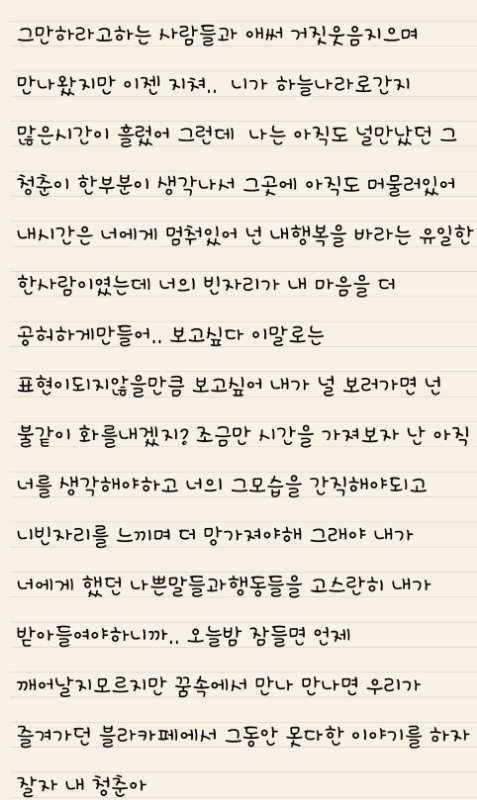 그만하라고하는 사람들과 애써 거짓웃음지으며
만나왔지만 이젠 지쳐.. 니가 하늘나라로간지
많은시간이 흘렀어 그런데 나는 아직도 널만났던 그
청춘이 한부분이 생각나서 그곳에 아직도 머물러있어
내시간은 너에게 멈춰있어 넌 내행복을 바라는 유일한
한사람이였는데 너의 빈자리가 내 마음을 더
공허하게만들어.. 보고싶다 이말로는
표현이되지않을만큼 보고싶어 내가 널 보러가면 넌
불같이 화를내겠지? 조금만 시간을 가져보자 난 아직
너를 생각해야하고 너의 그모습을 간직해야되고
니빈자리를 느끼며 더 망가져야해 그래야 내가
너에게 했던 나쁜말들과행동들을 고스란히 내가
받아들여야하니까.. 오늘밤 잠들면 언제
깨어날지모르지만 꿈속에서 만나 만나면 우리가
즐겨가던 블라카페에서 그동안 못다한 이야기를 하자
잘자 내 청춘아